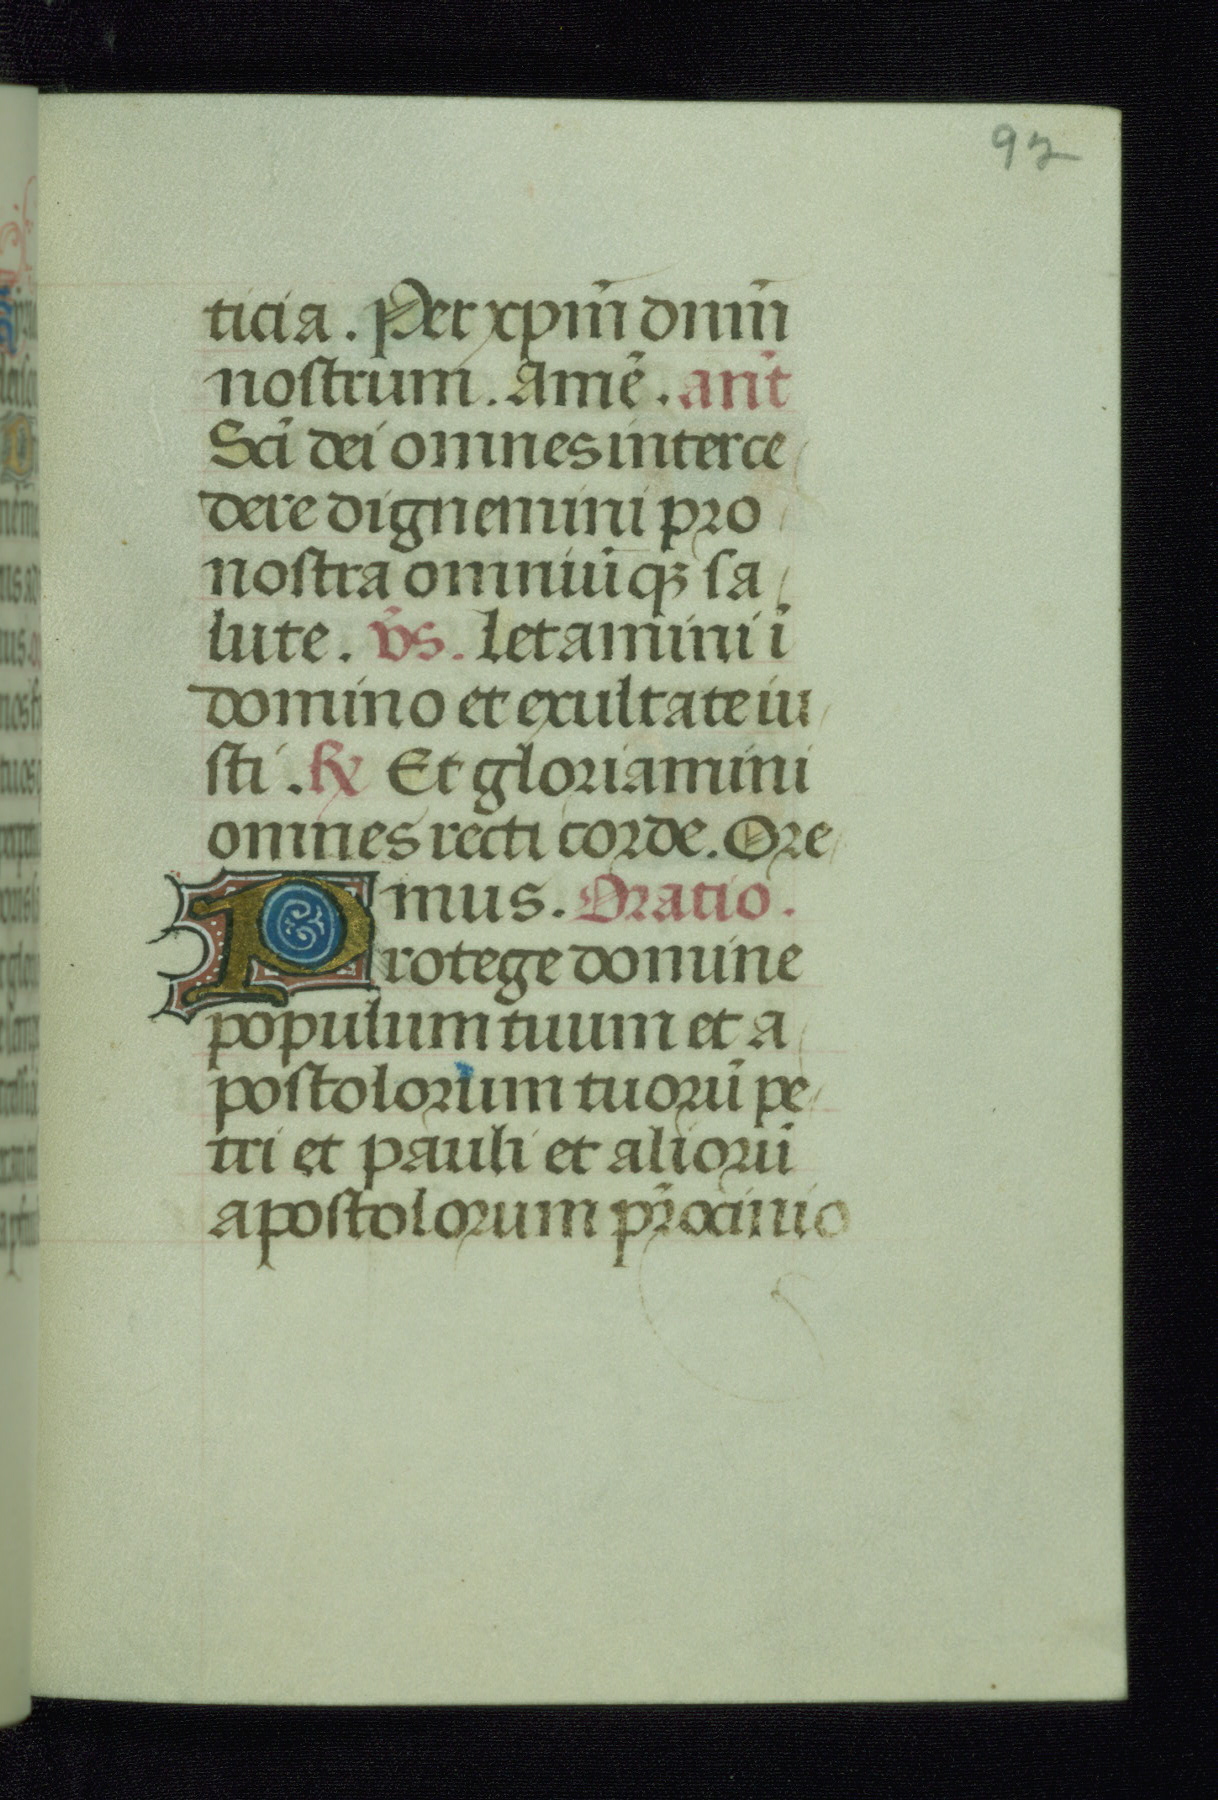 92
ticia. Per xp̄m dn̄m
nostrum. Amē. an̄t
Sc̄i dei omnes interce
dere dignemini pro
nostra omniūqꝫ sa
lute. v̄s. Letamini ī
domino et exultate iu
sti. ℟ Et gloriamini
omnes recti corde. Ore
mus. Oratio.
Protege domine
populum tuum et a
postolorum tuorū pe
tri et pauli et aliorū
apostolorum pr̄ocinio